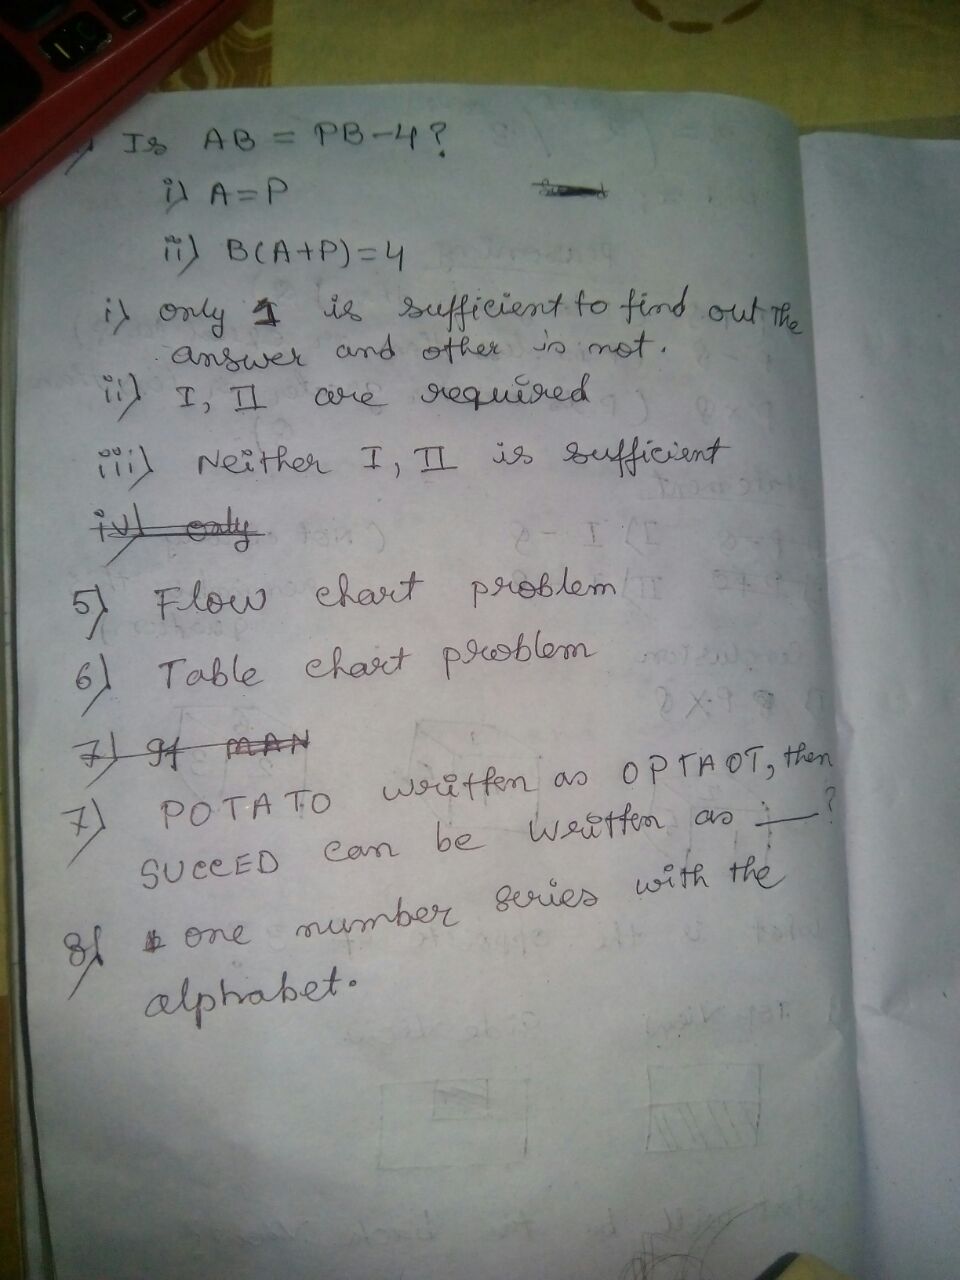 Is AB = PB-4?
i) A=P
ii) B(A+P)=4
i) only I is sufficient to find out the
answer and other is not.
ii) I, II are required
iii) Neither I, II is sufficient
iv) only
5) Flow chart problem
6) Table chart problem
7) If MAN
7) POTATO written as OPTAOT, then
SUCCED can be written as :— ?
8) one number series with the
alphabet.